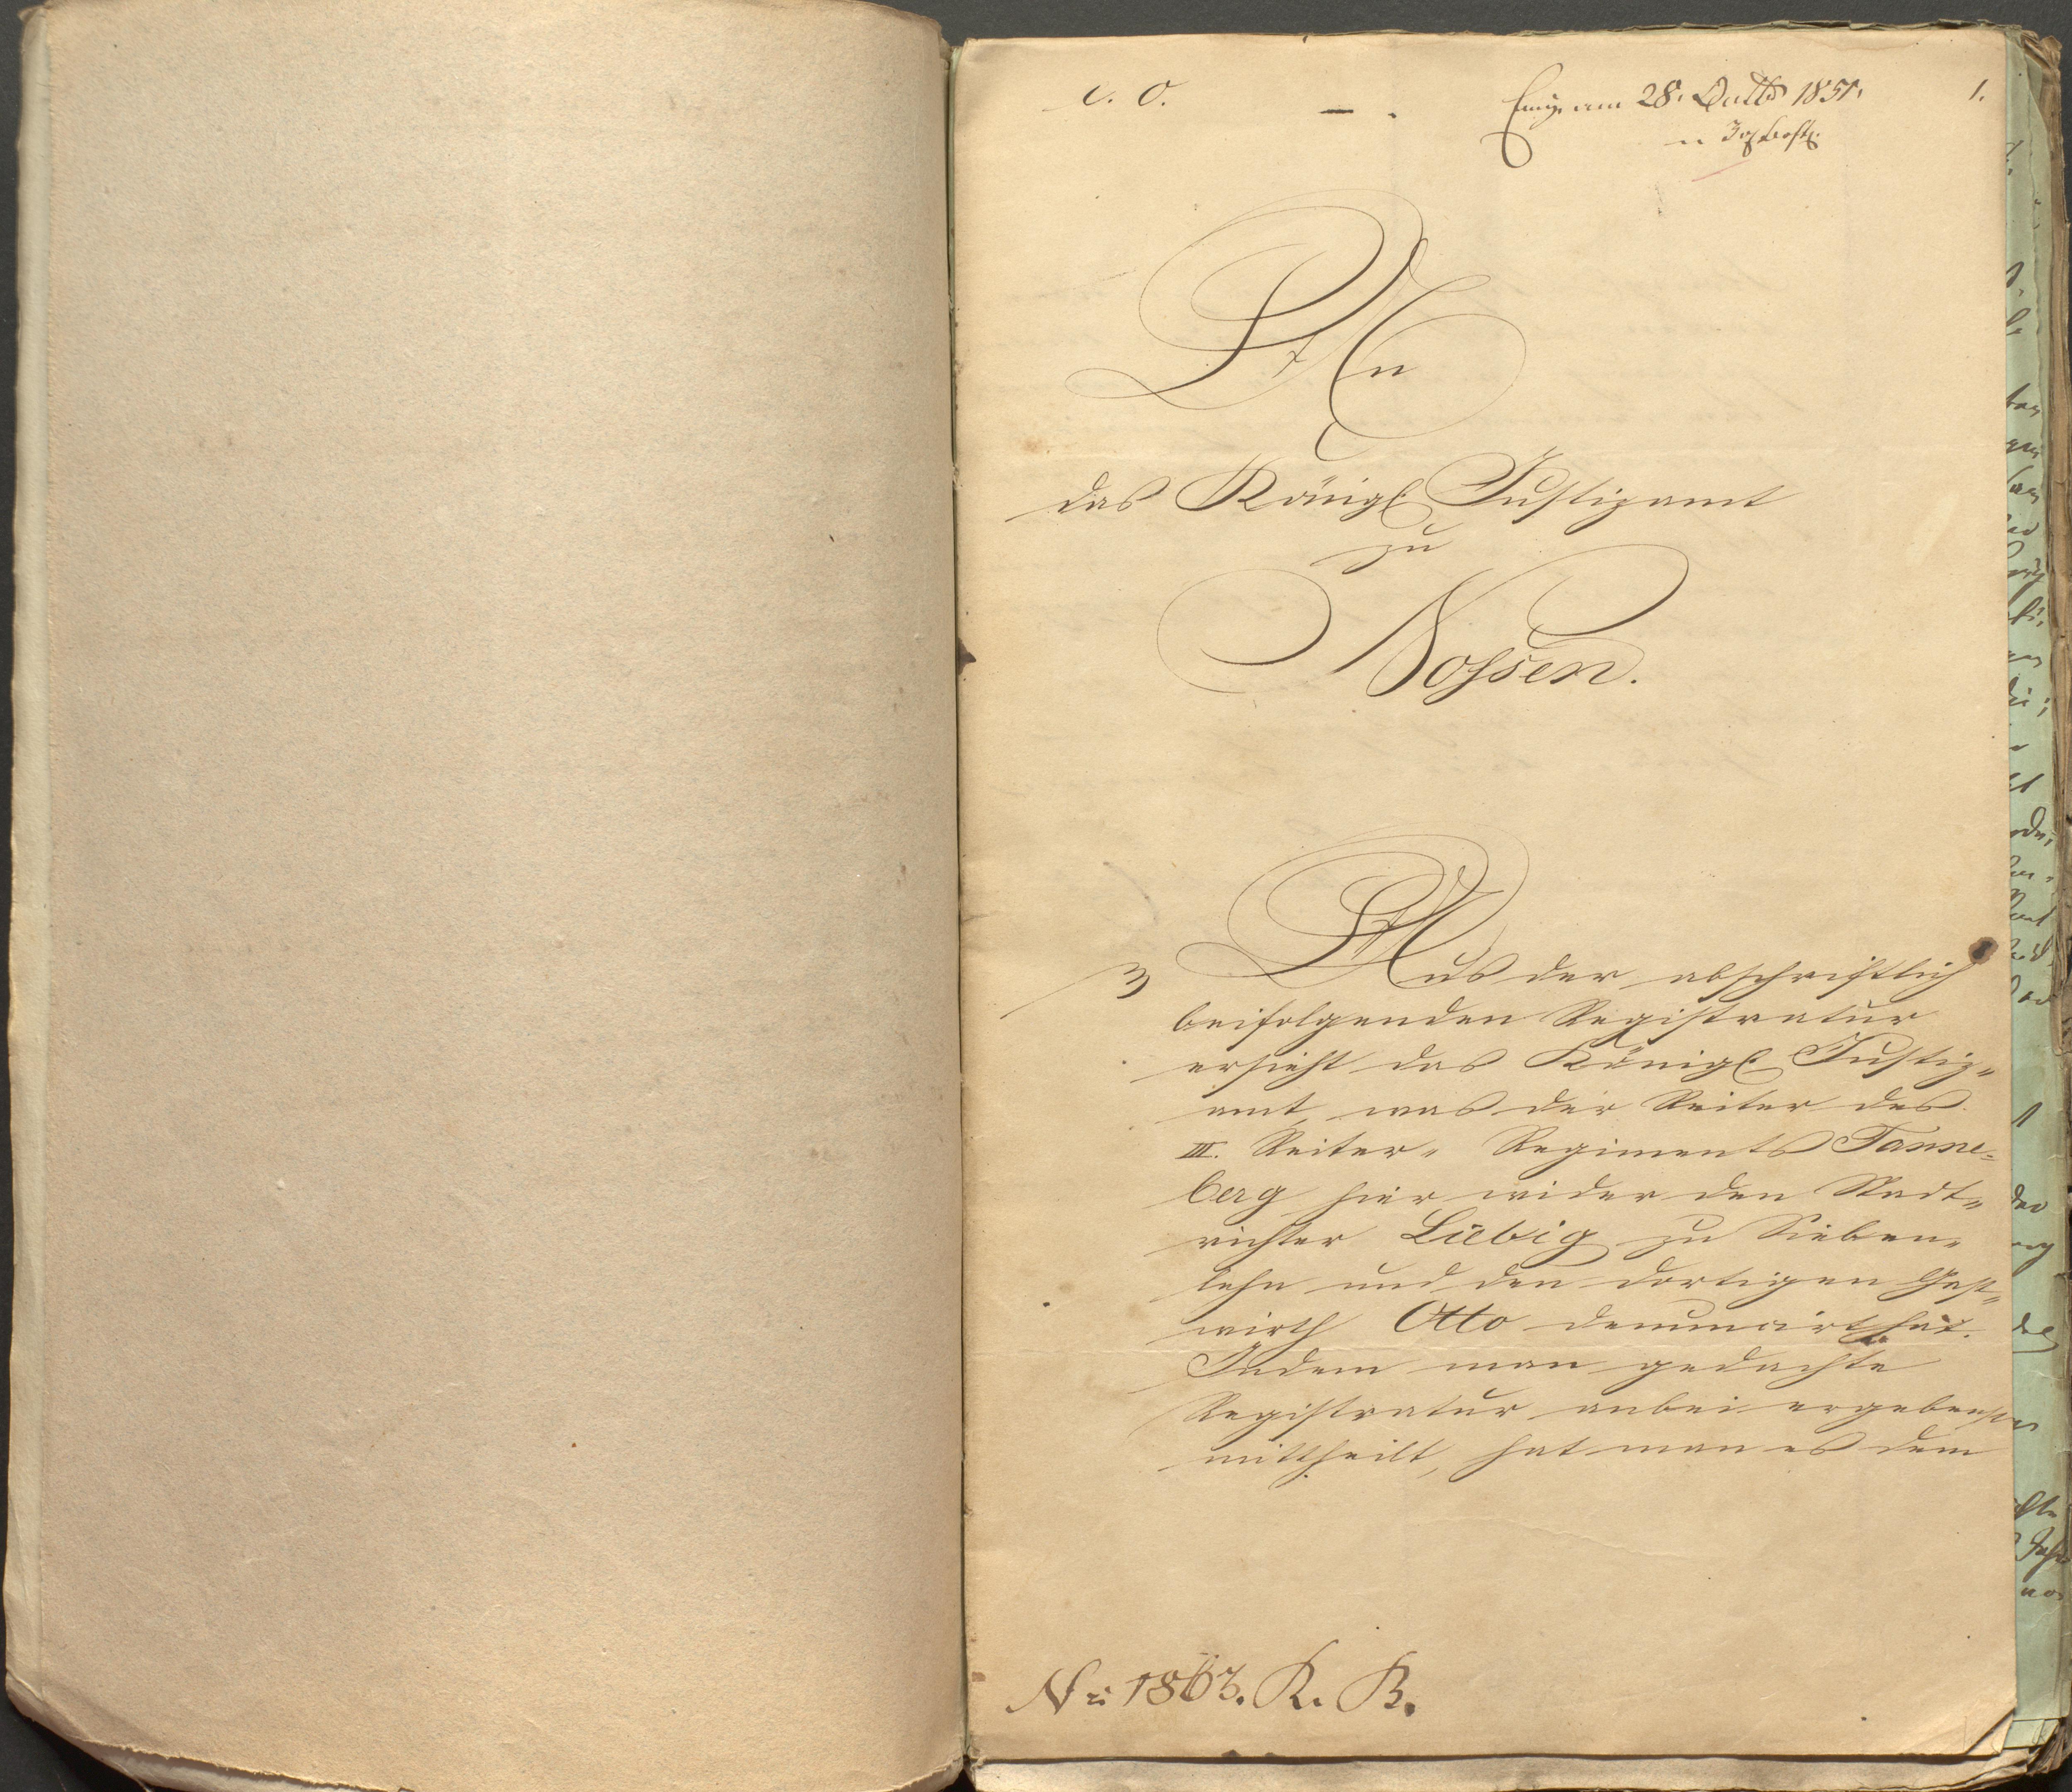 c. O.
Eing. am 28. Octbr 1851.
1.
An
das Königl. Justizamt
zu
Nossen.
Aus der abschriftlich
beifolgenden Registratur
ersieht das Königl. Justiz-
amt, was der Reiter des
III. Reiter- Regiments Tanne-
berg hier wider den Stadt-
richter Liebig zu Sieben-
lehn und den dortigen Gast-
wirth Otto denuncirt hat.
Indem man gedachte
Registratur anbei ergebenst
mittheilt, hat man es dem
Nr: 1863. K. B.